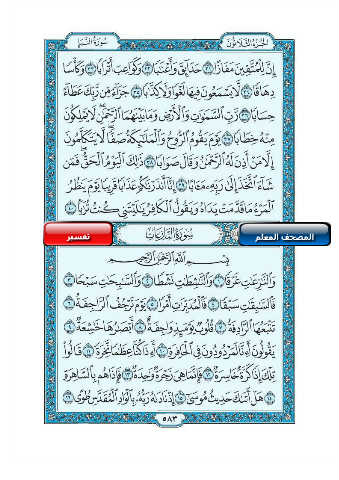 الجزء الثلاثون
سورة النبإ
إِنَّ لِلْمُتَّقِينَ مَفَازًا ٣١ حَدَآئِقَ وَأَعْنَٰبًا ٣٢ وَكَوَاعِبَ أَتْرَابًا ٣٣ وَكَأْسًا
دِهَاقًا ٣٤ لَّا يَسْمَعُونَ فِيهَا لَغْوًا وَلَا كِذَّٰبًا ٣٥ جَزَآءً مِّن رَّبِّكَ عَطَآءً
حِسَابًا ٣٦ رَّبِّ السَّمَٰوَٰتِ وَالْأَرْضِ وَمَا بَيْنَهُمَا الرَّحْمَٰنِ لَا يَمْلِكُونَ
مِنْهُ خِطَابًا ٣٧ يَوْمَ يَقُومُ الرُّوحُ وَالْمَلَٰٓئِكَةُ صَفًّا لَّا يَتَكَلَّمُونَ
إِلَّا مَنْ أَذِنَ لَهُ الرَّحْمَٰنُ وَقَالَ صَوَابًا ٣٨ ذَٰلِكَ الْيَوْمُ الْحَقُّ فَمَن
شَآءَ اتَّخَذَ إِلَىٰ رَبِّهِ مَـَٔابًا ٣٩ إِنَّآ أَنذَرْنَٰكُمْ عَذَابًا قَرِيبًا يَوْمَ يَنظُرُ
الْمَرْءُ مَا قَدَّمَتْ يَدَاهُ وَيَقُولُ الْكَافِرُ يَٰلَيْتَنِي كُنتُ تُرَٰبًا ٤٠
المصحف المعلم
سورة النازعات
تفسير
بِسْمِ اللَّهِ الرَّحْمَٰنِ الرَّحِيمِ
وَالنَّٰزِعَٰتِ غَرْقًا ١ وَالنَّٰشِطَٰتِ نَشْطًا ٢ وَالسَّٰبِحَٰتِ سَبْحًا ٣
فَالسَّٰبِقَٰتِ سَبْقًا ٤ فَالْمُدَبِّرَٰتِ أَمْرًا ٥ يَوْمَ تَرْجُفُ الرَّاجِفَةُ ٦
تَتْبَعُهَا الرَّادِفَةُ ٧ قُلُوبٌ يَوْمَئِذٍ وَاجِفَةٌ ٨ أَبْصَٰرُهَا خَٰشِعَةٌ ٩
يَقُولُونَ أَءِنَّا لَمَرْدُودُونَ فِي الْحَافِرَةِ ١٠ أَءِذَا كُنَّا عِظَٰمًا نَّخِرَةً ١١ قَالُوا
تِلْكَ إِذًا كَرَّةٌ خَاسِرَةٌ ١٢ فَإِنَّمَا هِيَ زَجْرَةٌ وَٰحِدَةٌ ١٣ فَإِذَا هُم بِالسَّاهِرَةِ
١٤ هَلْ أَتَىٰكَ حَدِيثُ مُوسَىٰ ١٥ إِذْ نَادَىٰهُ رَبُّهُ بِالْوَادِ الْمُقَدَّسِ طُوًى ١٦
٥٨٣